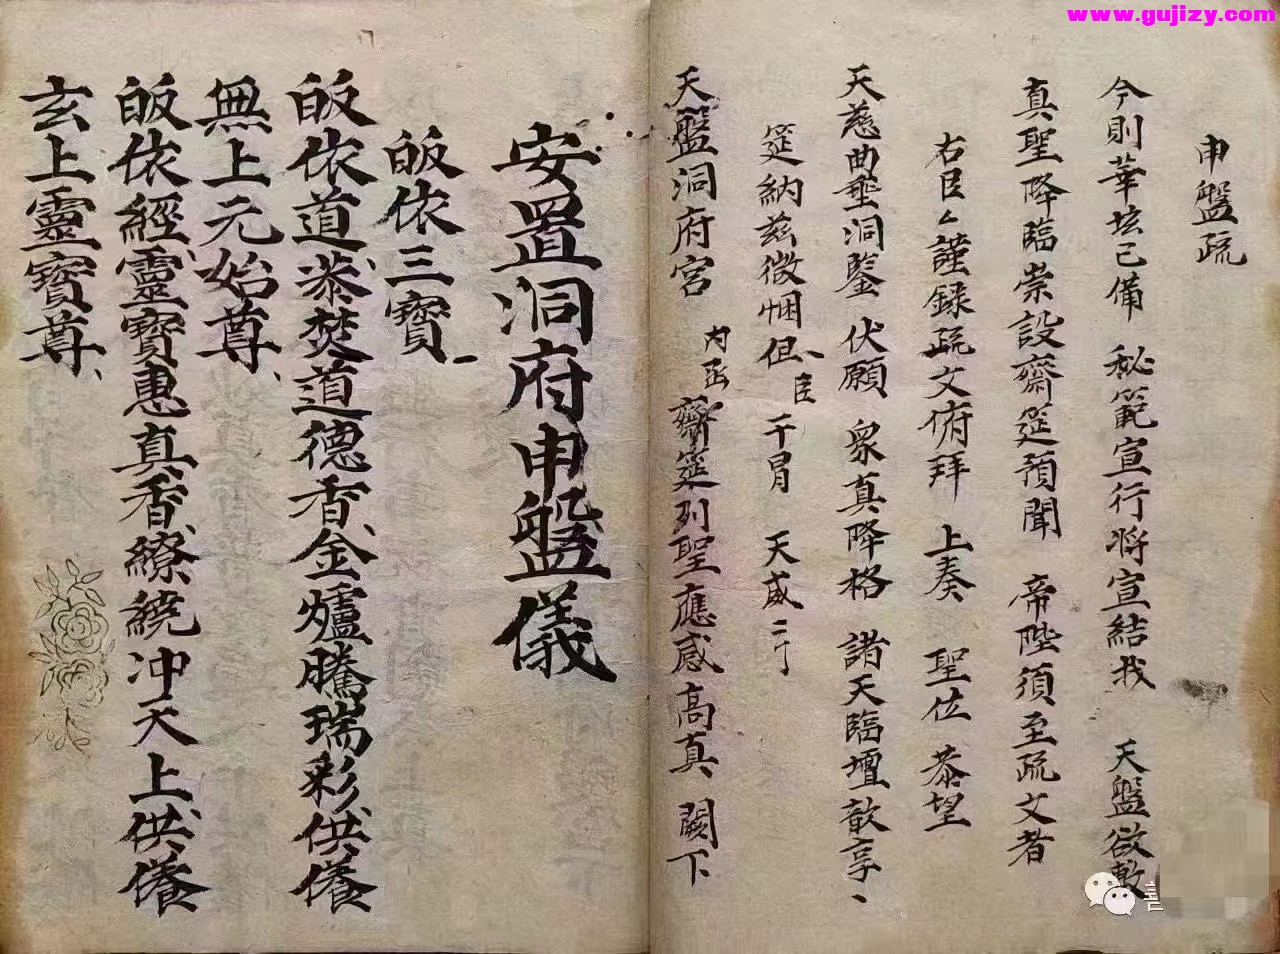 www.gujizy.com
申盤疏
今則華坛已備 秘範宣行将宣結戏 天盤欲敷
真聖降臨崇設齋筵預聞 帝陛須至疏文者
右臣厶謹録疏文俯拜 上奏 聖位 恭望
天慈曲垂洞鑒 伏願 衆真降格 諸天臨壇歆享、
筵納兹微悃但、臣干冒 天威二丁
天盤洞府宮 内函 齋筵列聖應感高真 闕下
安置洞府申盤儀
皈依三寶
皈依道恭焚道德香金爐騰瑞彩供養
無上元始尊
皈依經靈寶惠真香繚繞冲天上供養
玄上靈寶尊